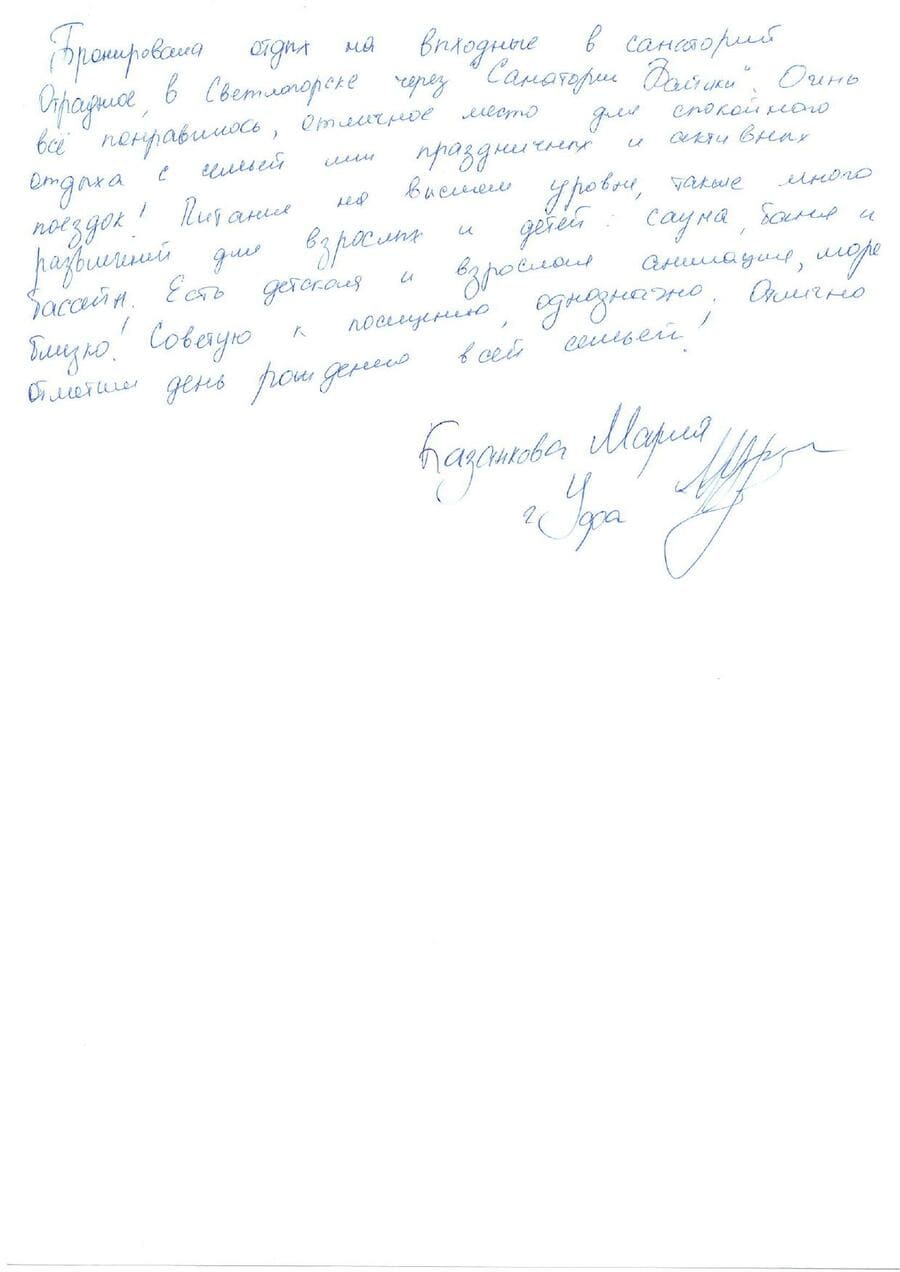 Бронировала отдых на выходные в санаторий
Отрадное, в Светлогорске через "Санатории Балтики". Очень
всё понравилось, отличное место для спокойного
отдыха с семьей или праздничных и активных
поездок! Питание на высшем уровне, также много
развлечений для взрослых и детей: сауна, баня и
бассейн. Есть детская и взрослая анимация, море
близко! Советую к посещению, однозначно. Отлично
отметили день рождению всей семьей!
Казанкова Мария
г Уфа